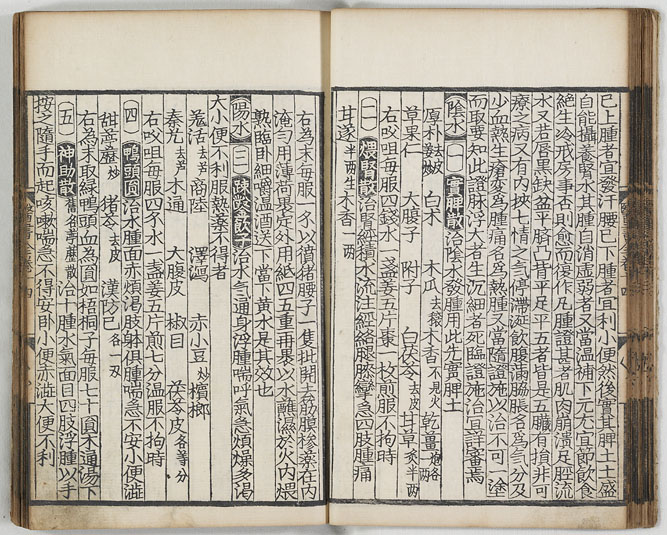 已上腫者宜發汗腰已下腫者宜利小便然後實其脾土土盛
自能攝養腎水其腫自消虛弱者又當溫補下元尤宜節飲食
絶生冷戒房事否則愈而復作凡腫證甚者肌肉崩潰足脛流
水又若唇黑缺盆平臍凸背平足平五者皆是五臟有損非可
療之病又有內挾七情之氣停滯涎飲腹滿脇脹名爲氣分及
少血熱生瘡變爲腫痛名爲熱腫又當隨證施以治不可一塗
而取要知此證脉浮大者生沉細者死臨證施治宜詳審焉
陰水 一 實脾散 治陰水發腫用此先實脾土
厚朴 白术 木瓜 去穰 木香 不見火 乾薑 炮各一两
草果仁 大腹子 附子 白茯苓 去皮 甘草 炙半两
右㕮咀每服四錢水一盞姜五片棗一枚煎服不拘時
二 煨腎散 治腎經積水流注經絡腿膝攣急四肢腫痛
甘遂 半两生 木香 一两
右為末每服一各以獖猪腰子一隻批開去筋膜糝藥在內
淹勻用薄荷裹定外用紙四五重再裹以水蘸濕於火內煨
熟臨卧細嚼溫酒送下當下黃水是其效也
陽水 三 踈鑿飲子 治水氣通身浮腫喘呼氣急煩燥多渴
大小便不利服熱藥不得者
羗活 去芦 商陸 澤瀉 赤小豆 炒 檳榔
秦艽 去芦 木通 大腹皮 椒目 茯苓皮 各等分
右㕮咀每服四各水一盞姜五片煎七分溫服不拘時
四 鴨頭圓 治水腫面赤煩渴肢躰俱腫喘急不安小便澁
甜葶藶 炒 猪苓 去皮 漢防巳 各一两
右為末取緑鴨頭血為圓如梧桐子每服七十圓木通湯下
五 神助散 舊名葶藶散 治十腫水氣面目四肢浮腫以手
按之隨手而起咳嗽喘急不得安卧小便赤澁大便不利